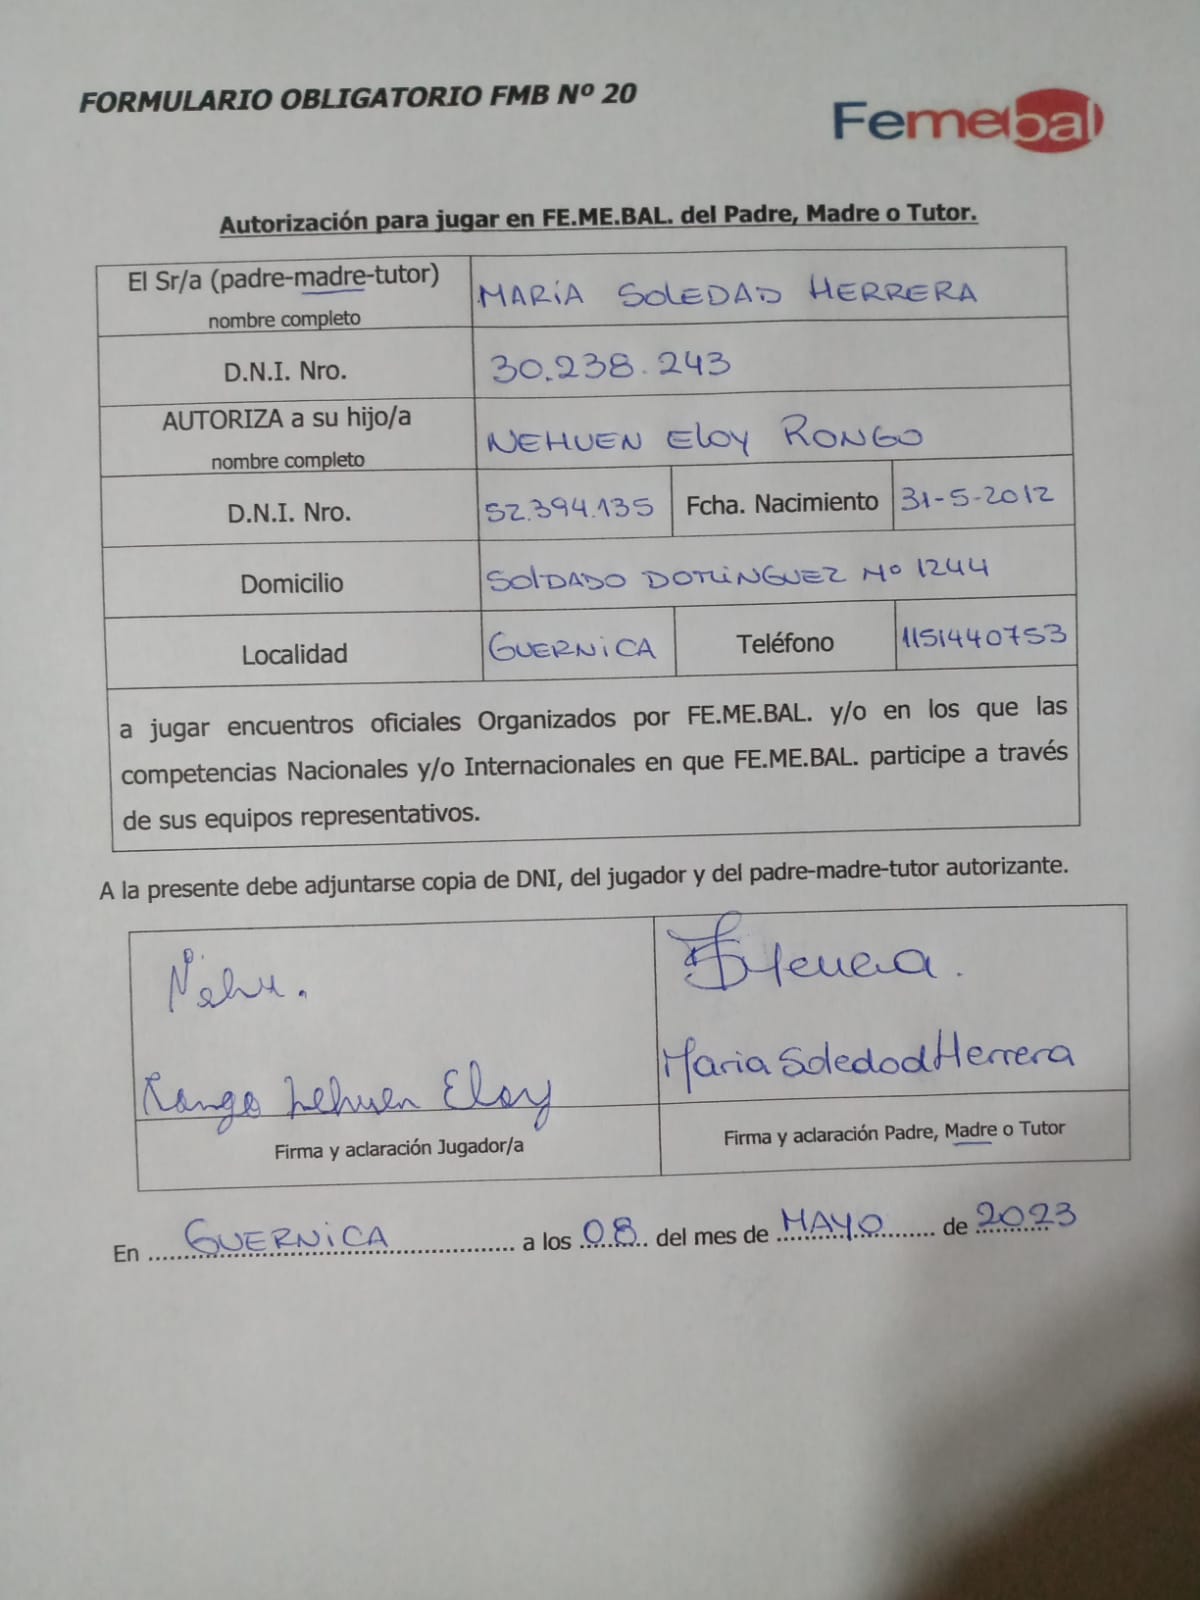 FORMULARIO OBLIGATORIO FMB Nº 20
Femebal
Autorización para jugar en FE.ME.BAL. del Padre, Madre o Tutor.
El Sr/a (padre-madre-tutor)
nombre completo
MARÍA SOLEDAD HERRERA
D.N.I. Nro.
30.238.243
AUTORIZA a su hijo/a
nombre completo
NEHUEN ELOY RONGO
D.N.I. Nro.
52.394.135
Fcha. Nacimiento
31-5-2012
Domicilio
SOLDADO DOMINGUEZ Nº 1244
Localidad
GUERNICA
Teléfono
1151440753
a jugar encuentros oficiales Organizados por FE.ME.BAL. y/o en los que las
competencias Nacionales y/o Internacionales en que FE.ME.BAL. participe a través
de sus equipos representativos.
A la presente debe adjuntarse copia de DNI, del jugador y del padre-madre-tutor autorizante.
Nehu.
Rongo Nehuen Eloy
Firma y aclaración Jugador/a
Herrera.
Maria Soledad Herrera
Firma y aclaración Padre, Madre o Tutor
En GUERNICA a los 08 del mes de MAYO de 2023